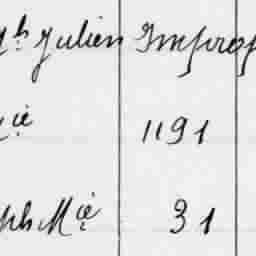 ph Julien Improp
cie 1191
ph Mie 31